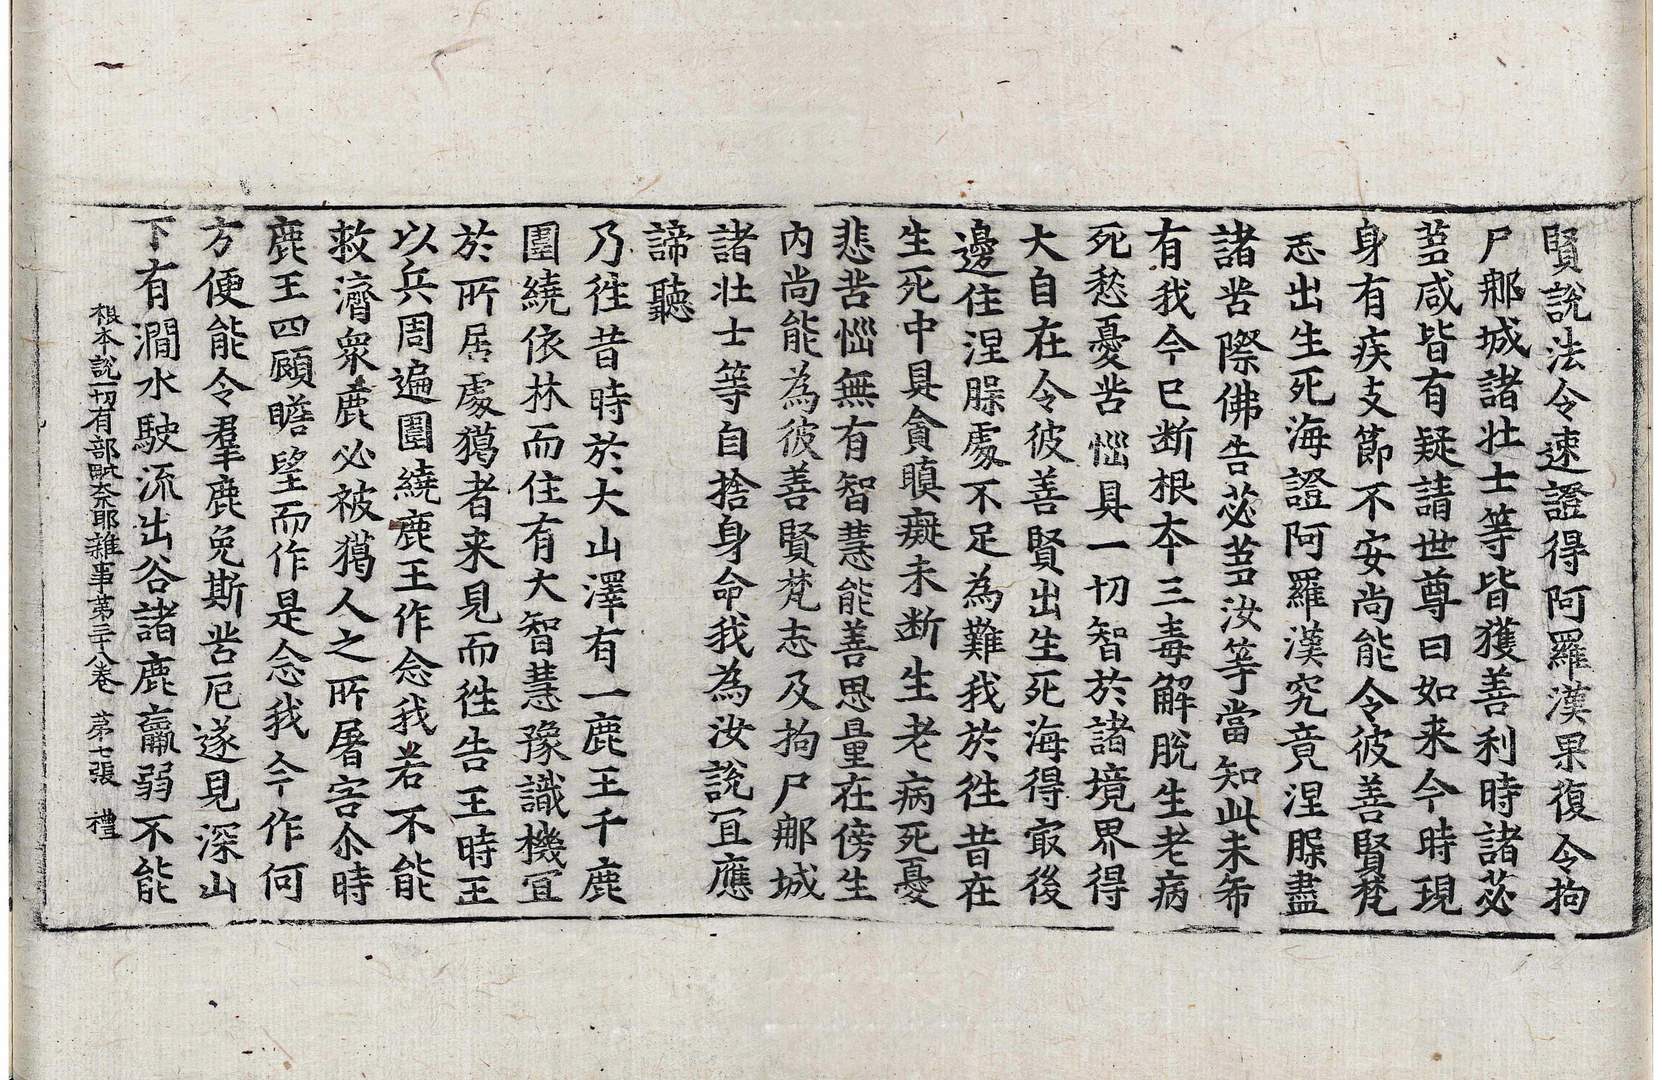 賢說法令速證得阿羅漢果復令拘
尸那城諸壯士等皆獲善利時諸苾
芻咸皆有疑請世尊曰如来今時現
身有疾支節不安尚能令彼善賢梵
志出生死海證阿羅漢究竟涅槃盡
諸苦際佛告苾芻汝等當知此未希
有我今已断根本三毒解脫生老病
死愁憂苦惱具一切智於諸境界得
大自在令彼善賢出生死海得㝡後
邊住涅槃處不足為難我於徃昔在
生死中具貪瞋癡未断生老病死憂
悲苦惱無有智慧能善思量在傍生
内尚能為彼善賢梵志及拘尸那城
諸壯士等自捨身命我為汝說冝應
諦聽
乃徃昔時於大山澤有一鹿王千鹿
圍繞依林而住有大智慧豫識機冝
於所居處獦者来見而徃告王時王
以兵周遍圍繞鹿王作念我若不能
救濟衆鹿必被獦人之所屠害尒時
鹿王四顧瞻望而作是念我今作何
方便能令羣鹿免斯苦厄遂見深山
下有澗水駛流出谷諸鹿羸弱不能
根本說一切有部毗奈耶雜事第三十八卷 第七張 禮